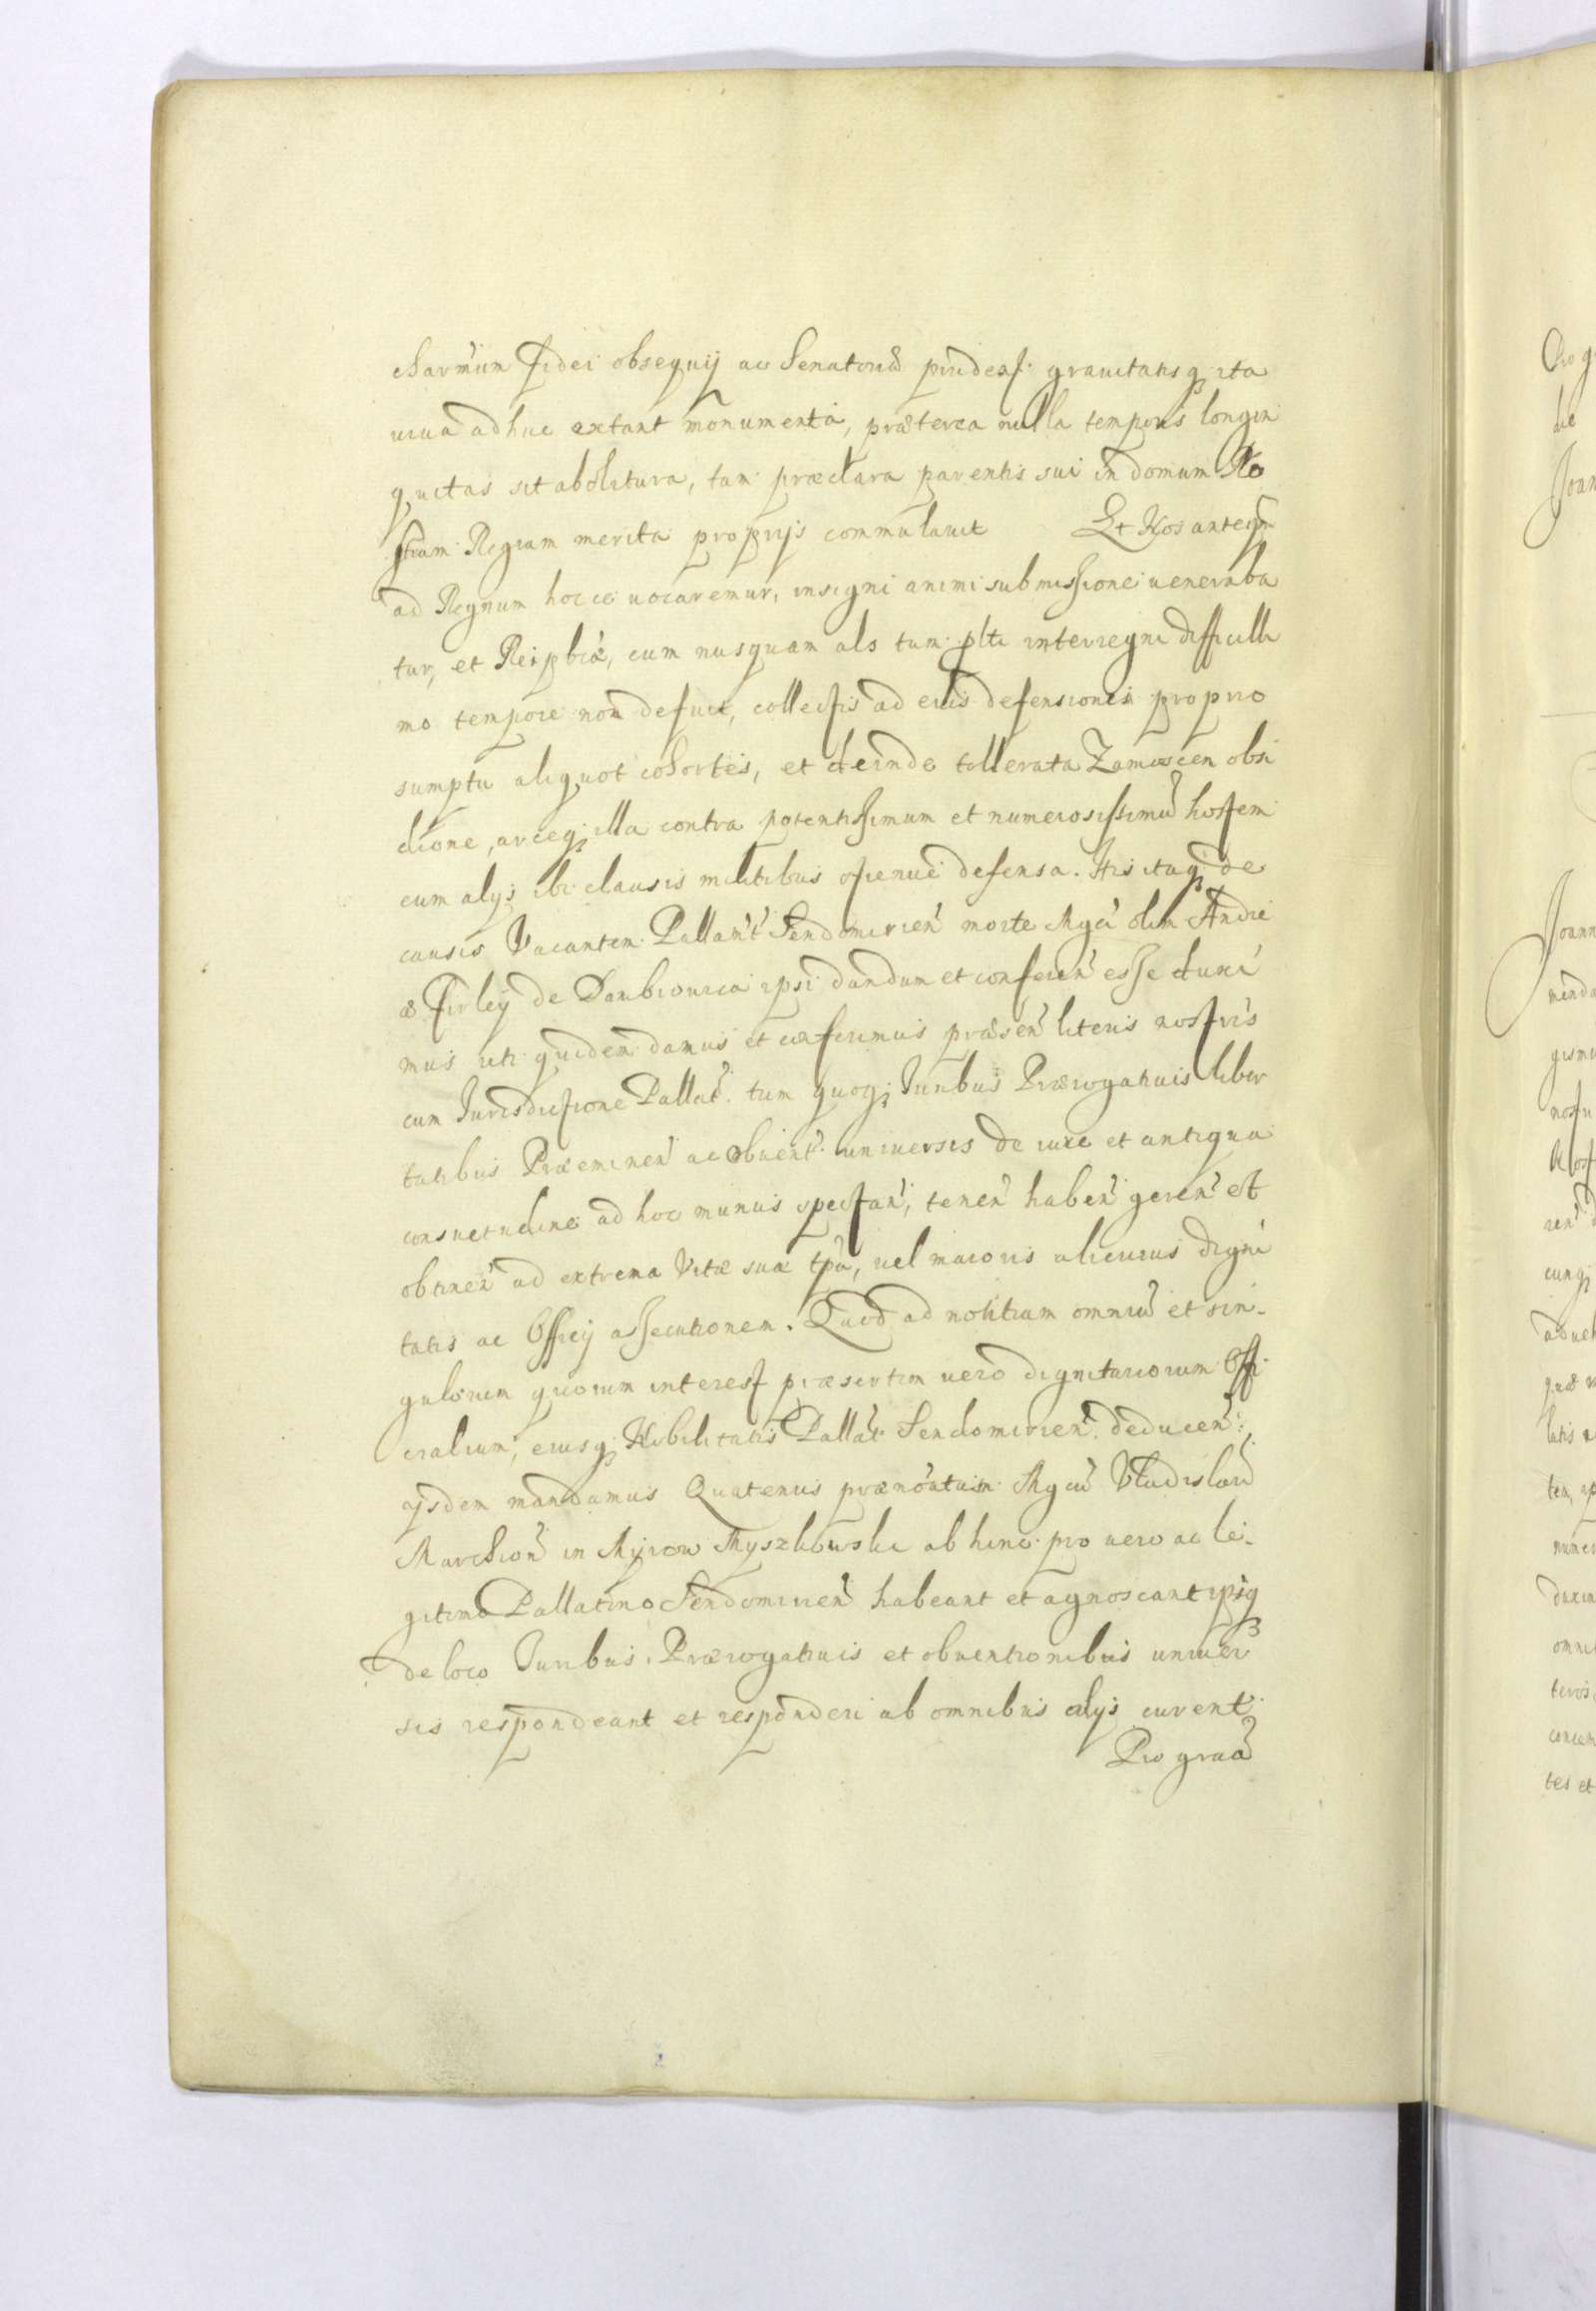 charm̃um fidei obsequij ac Senatoriæ prudeñ: grauitatisq; ita
uiua adhuc extant monumenta, præterea nulla temporis longin
quitas sit abolitura, tam præclara parentis sui in domum No
stram Regiam merita proprijs commulauit Et Nos anteqm̃
ad Regnum hocce uocaremur, insigni animi submissione ueneraba
tur, et Reipbcæ, cum nusquam als tum plti interregni difficilli
mo tempore non defuit, collectis ad eius defensionem proprio
sumptu aliquot cohortes, et deinde tollerata Zamoscen obsi
dione, arceq; illa contra potentissimum et numerosissimũ hostem
cum alijs ibi clausis militibus strenue defensa. His itaq; de
causis Vacantem Pallam̃t Sendomirien̄ morte Mgci olim Andre
æ Firleij de Dambrouica ipsi dandum et conferen̄ esse duxi
mus uti quidem damus et conferimus præsen̄ literis nostris
cum Jurisdictione Pallat̄. tum quoq; Juribus Prærogatiuis liber
tatibus Præeminen̄ ac obuent̄. uniuersis de iure et antiqua
consuetudine ad hoc munus spectan̄, tenen̄ haben̄ geren̄ et
obtinen̄ ad extrema Vitæ suæ tpa, uel maioris alicuius digni
tatis ac Officij assecutionem. Quod ad notitiam omniũ et sin-
gulorum quorum interest præsertim uero dignitariorum Offi
cialium, eiusq; Nobilitatis Pallat̄ Sendomirien̄. deducen̄:,
ijsdem mandamus Quatenus prænoĩatum Mgcũ Vladislaũ
Marchion̄ in Myrow Myszkowski ab hinc pro uero ac le-
gitimo Pallatino Sendomirien̄ habeant et agnoscant ipsiq
de loco Juribus, Prærogatiuis et obuentionibus uniuer
sis respondeant et responderi ab omnibus alijs curent
Pro graã